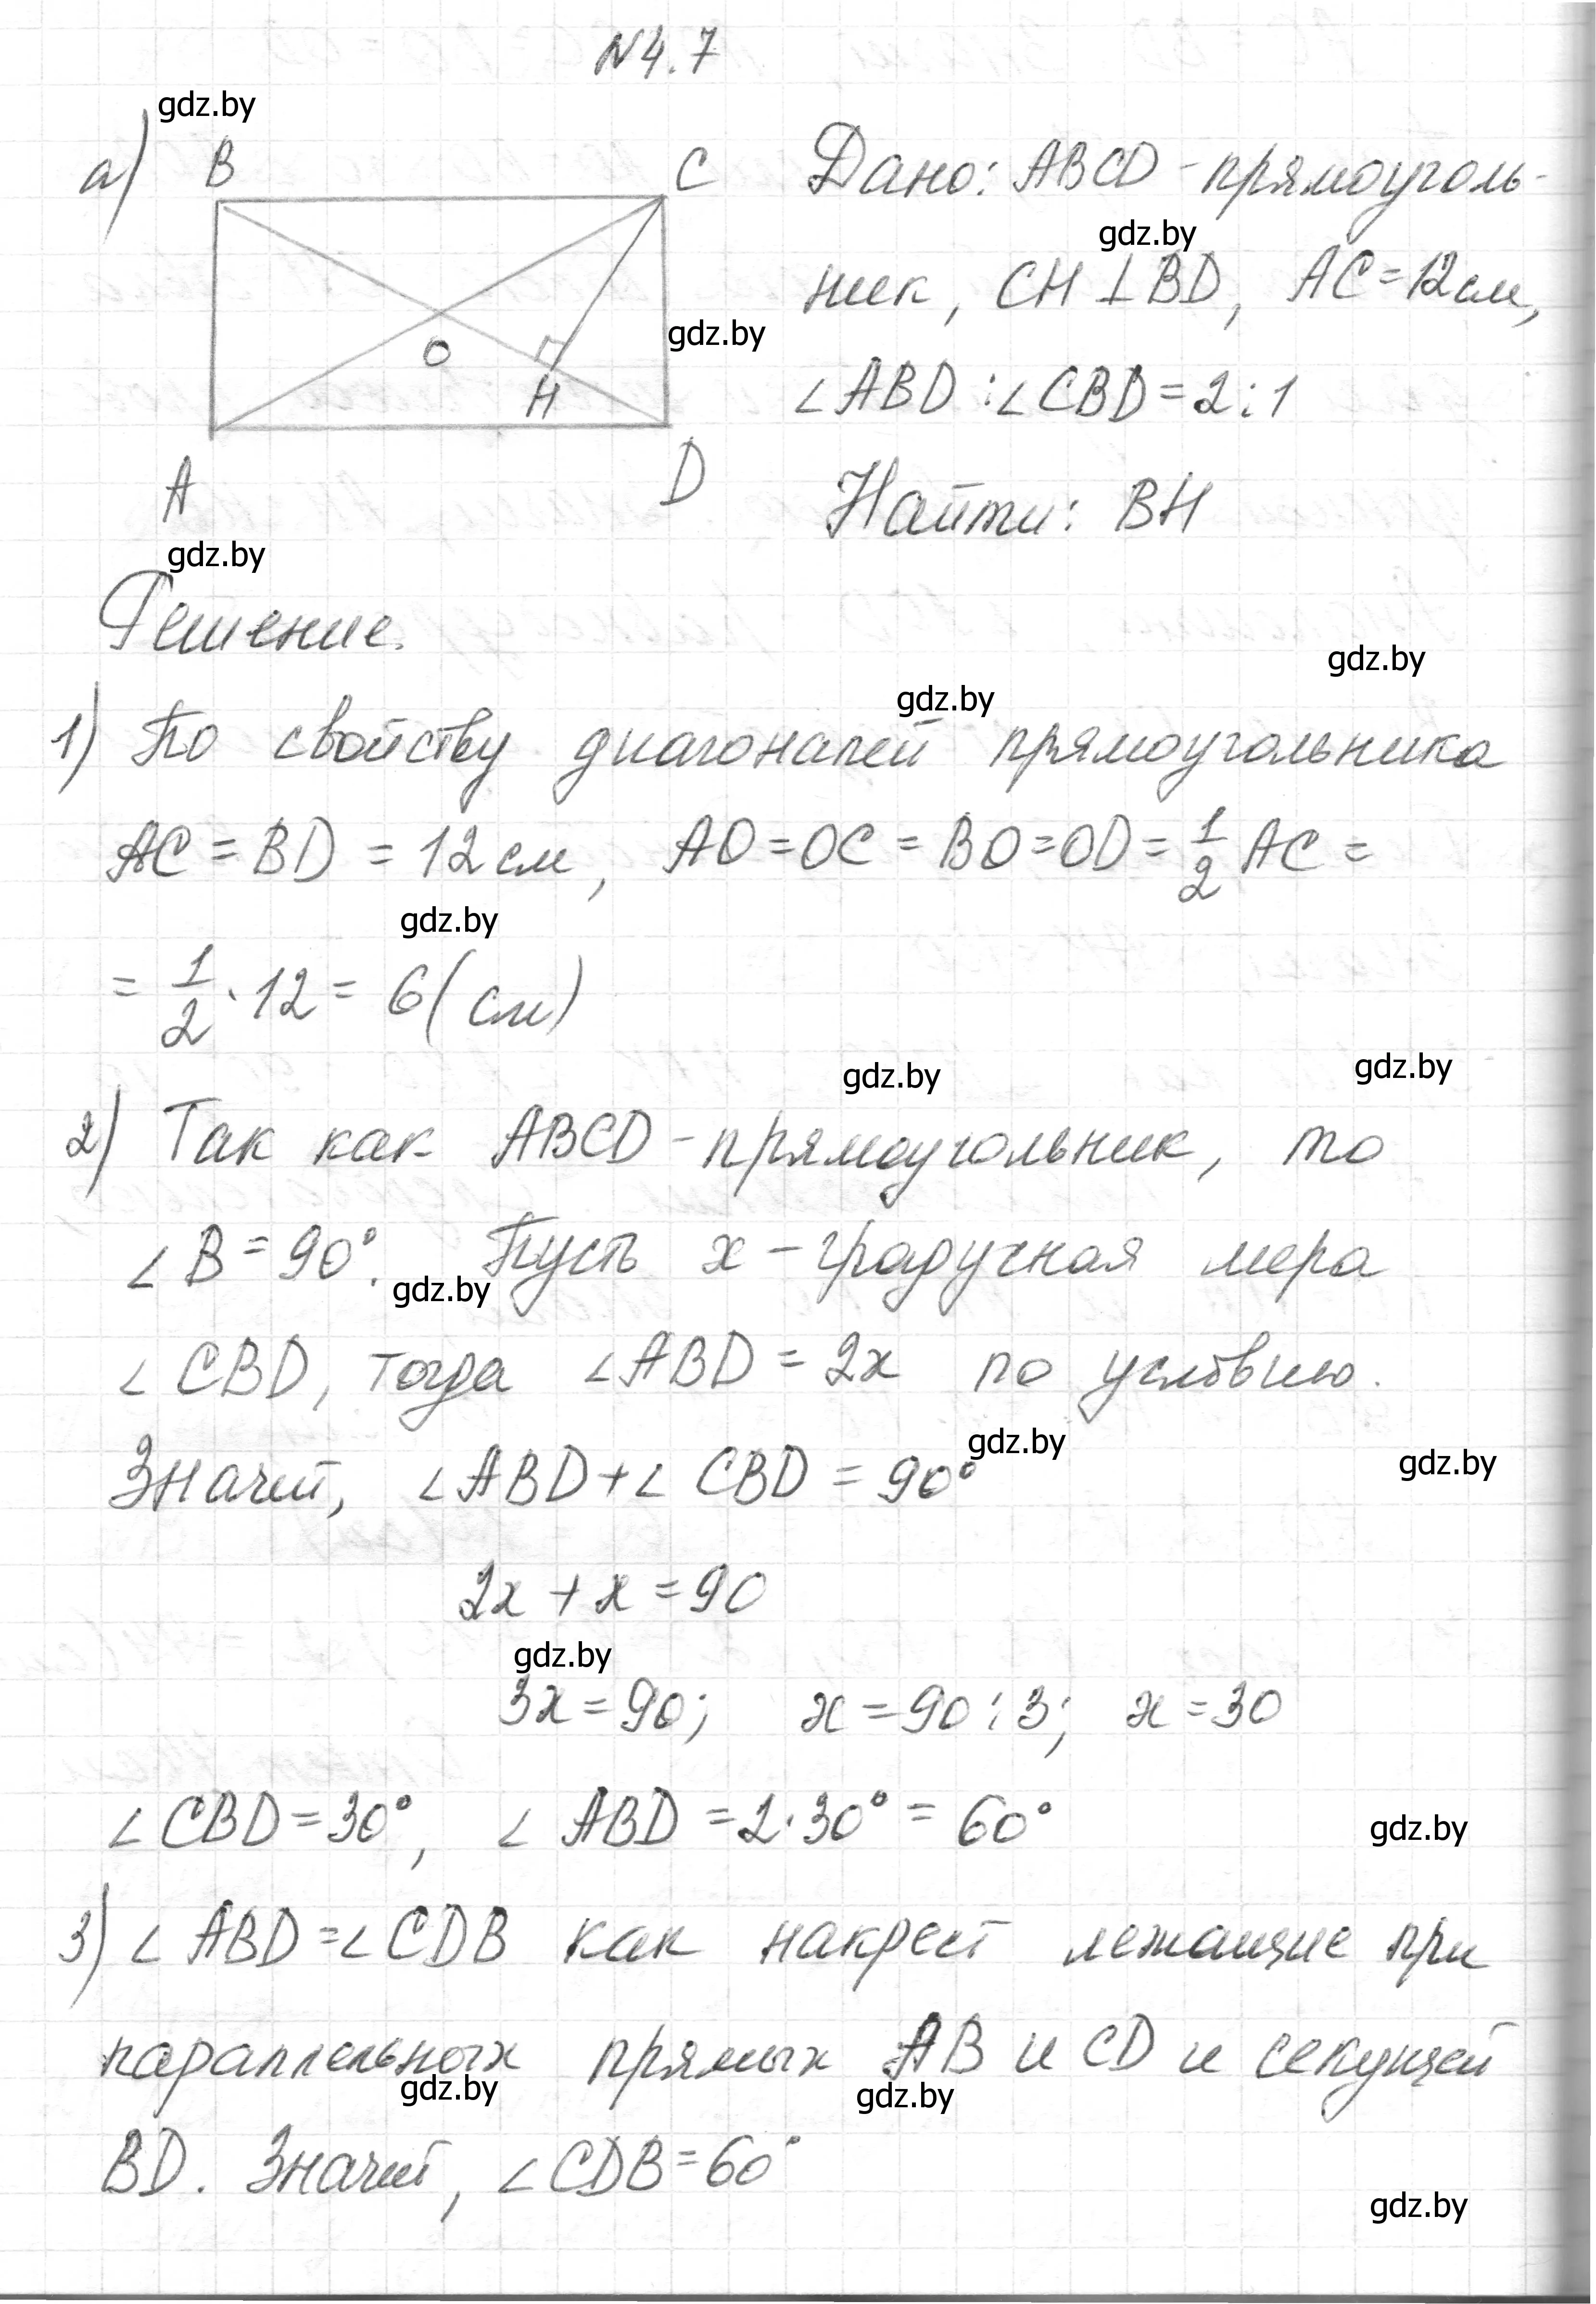 N4.7
gdz.by
а) B C
O
H
A D
gdz.by
gdz.by
Дано: ABCD - прямоуголь-
gdz.by
ник, CH ⊥ BD, AC = 12 см,
∠ABD : ∠CBD = 2 : 1
Найти: BH
Решение.
gdz.by
gdz.by
1) По свойству диагоналей прямоугольника
AC = BD = 12 см, AO = OC = BO = OD = 1/2 AC =
gdz.by
= 1/2 · 12 = 6 (см)
gdz.by
gdz.by
2) Так как ABCD - прямоугольник, то
∠B = 90°. Пусть x - градусная мера
gdz.by
∠CBD, тогда ∠ABD = 2x по условию.
gdz.by
gdz.by
Значит, ∠ABD + ∠CBD = 90°
2x + x = 90
gdz.by
3x = 90; x = 90 : 3; x = 30
∠CBD = 30°, ∠ABD = 2 · 30° = 60°
gdz.by
3) ∠ABD = ∠CDB как накрест лежащие при
параллельных прямых AB и CD и секущей
gdz.by
gdz.by
BD. Значит, ∠CDB = 60°
gdz.by